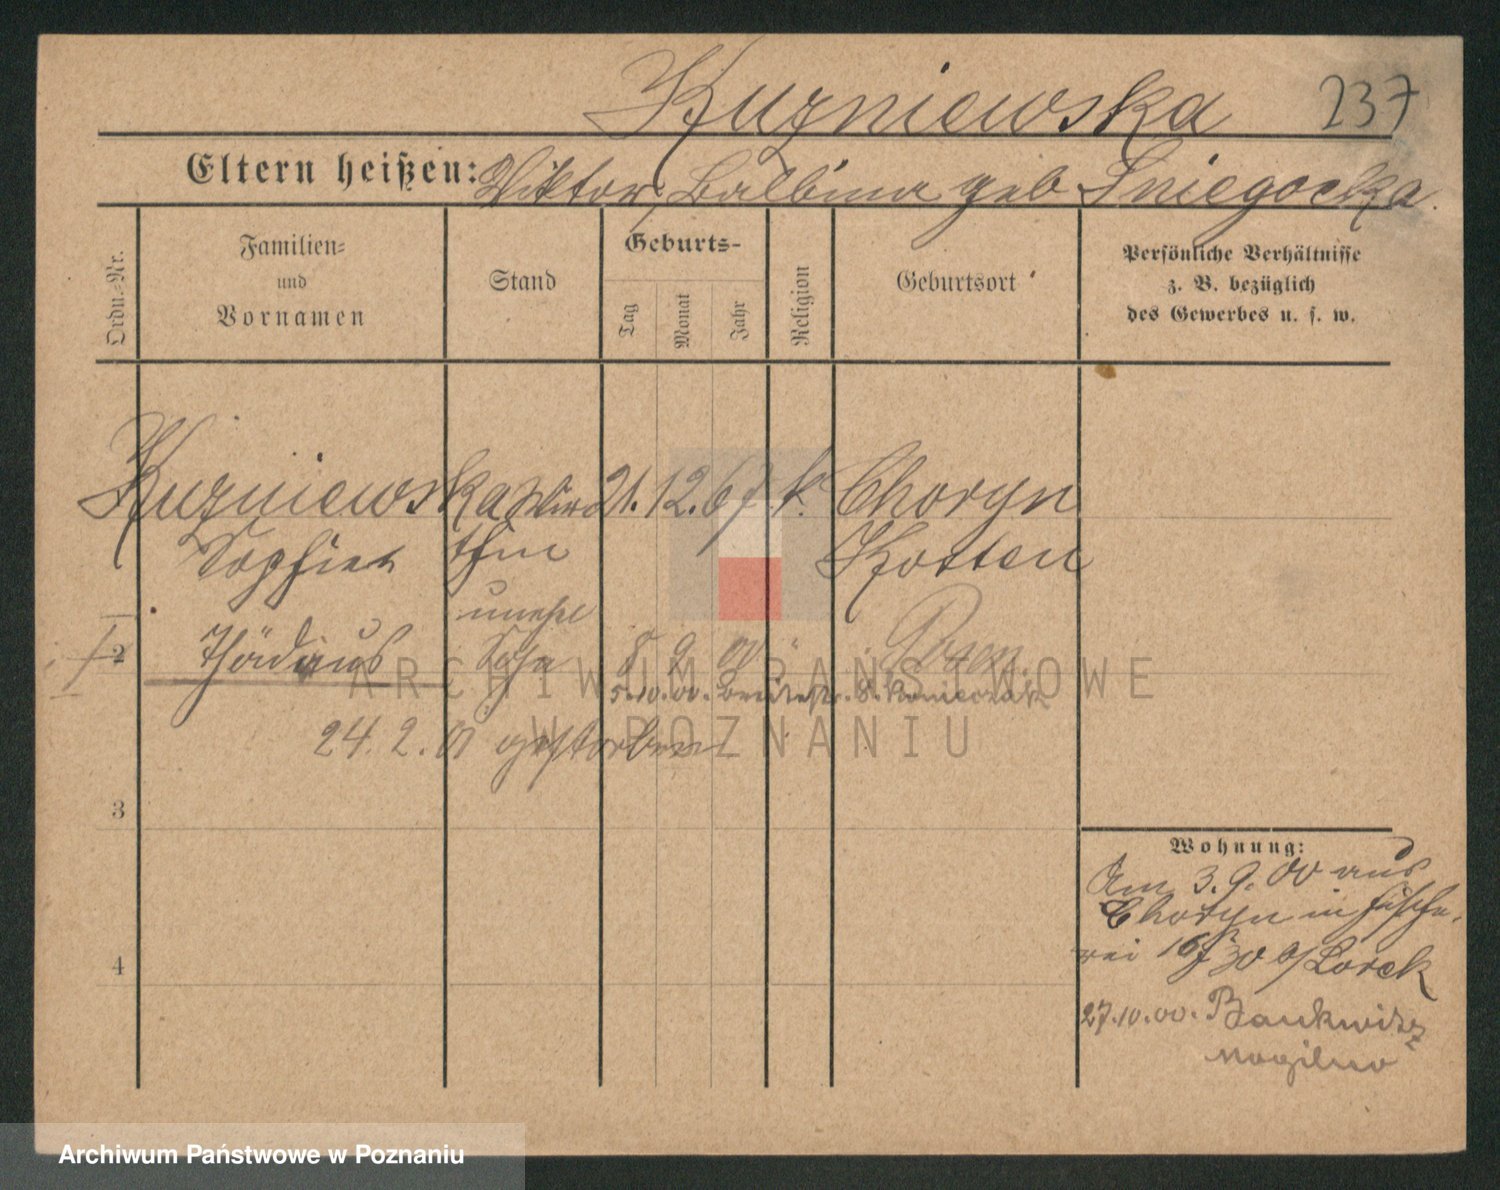 Kuzniewska 237
Eltern heißen: Wiktor, Balbina geb Sniegocka.
Ordn.-Nr.
Familien-
und
Vornamen
Stand
Geburts-
Tag
Monat
Jahr
Religion
Geburtsort
Persönliche Verhältnisse
z. B. bezüglich
des Gewerbes u. s. w.
Kuzniewska Wir 21. 12. 67 k. Choryn
Sophie thin Kosten
unehl
2 Thadäus Sohn 8 9 00 " Posen
5.10.00. Breitestr. 8. Konieczak
24. 2. 01 gestorben
3
4
Wohnung:
Am 3. 9. 00 aus
Choryn in Fische-
rei 16 b/ Lorck
27.10.00. Bankwitz
Mogilno
ARCHIWUM PAŃSTWOWE
W POZNANIU
Archiwum Państwowe w Poznaniu